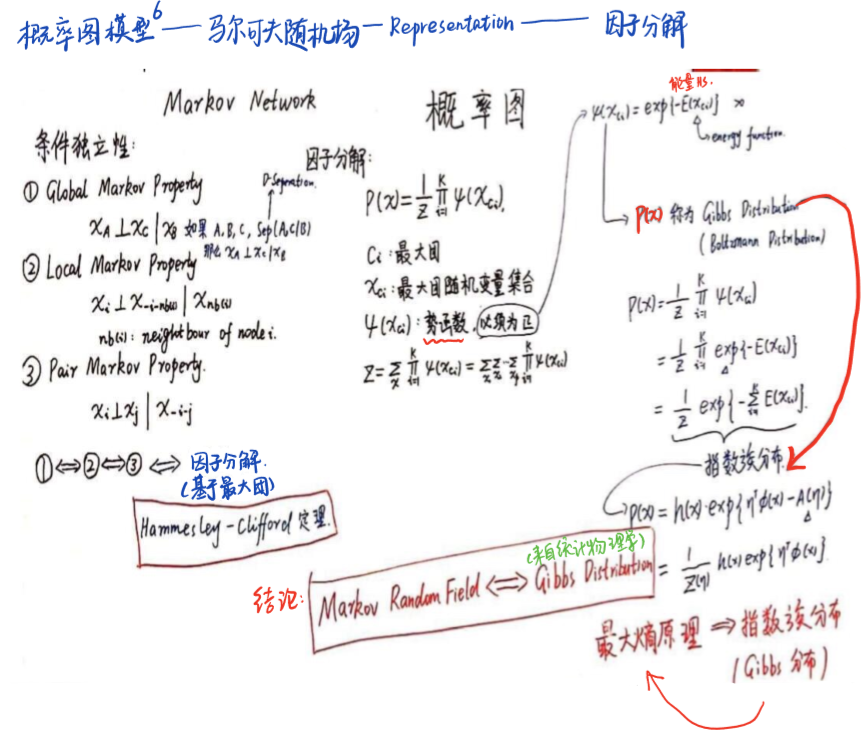 概率图模型6 —— 马尔可夫随机场 — Representation —— 因子分解
Markov Network
概率图
条件独立性:
① Global Markov Property
x_A ⊥ x_C | x_B 如果 A, B, C, Sep(A,C|B)
那么 x_A ⊥ x_C | x_B
D-Seperation.
② Local Markov Property
x_i ⊥ x_{-i-nb(i)} | x_{nb(i)}
nb(i): neightbour of node i.
③ Pair Markov Property.
x_i ⊥ x_j | x_{-i-j}
① ⟺ ② ⟺ ③ ⟺ 因子分解.
(基于最大团)
Hammesley-Clifford 定理.
因子分解:
P(x) = 1/Z ∏_{i=1}^K ψ(x_{ci}).
Ci: 最大团
x_{ci}: 最大团随机变量集合
ψ(x_{ci}): 势函数, 必须为正
Z = ∑_x ∏_{i=1}^K ψ(x_{ci}) = ∑_{x_1} ∑_{x_2} … ∑_{x_p} ∏_{i=1}^K ψ(x_{ci})
ψ(x_{ci}) = exp{-E(x_{ci})}
energy function.
P(x) 称为 Gibbs Distribution
(Boltzmann Distribution)
P(x) = 1/Z ∏_{i=1}^K ψ(x_{ci})
= 1/Z ∏_{i=1}^K exp{-E(x_{ci})}
= 1/Z exp{-∑_{i=1}^K E(x_{ci})}.
指数族分布.
P(x) = h(x)·exp{η^T φ(x) - A(η)}
= 1/Z(η) h(x) exp{η^T φ(x)}.
(来自统计物理学)
结论: Markov Random Field ⟺ Gibbs Distribution
最大熵原理 ⇒ 指数族分布
(Gibbs 分布)